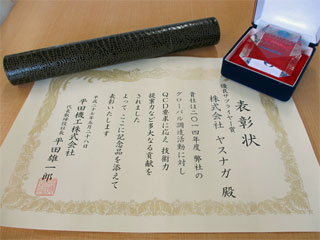 表彰状
優良サプライヤー賞
株式会社 ヤスナガ 殿
貴社は二〇一四年度 弊社の
グローバル調達活動に対し
QCD要求に応え 技術力
提案力など多大なる貢献を
されました
よって ここに記念品を添えて
表彰いたします
平成二十七年五月二十八日
平田機工株式会社
代表取締役社長 平田雄一郎